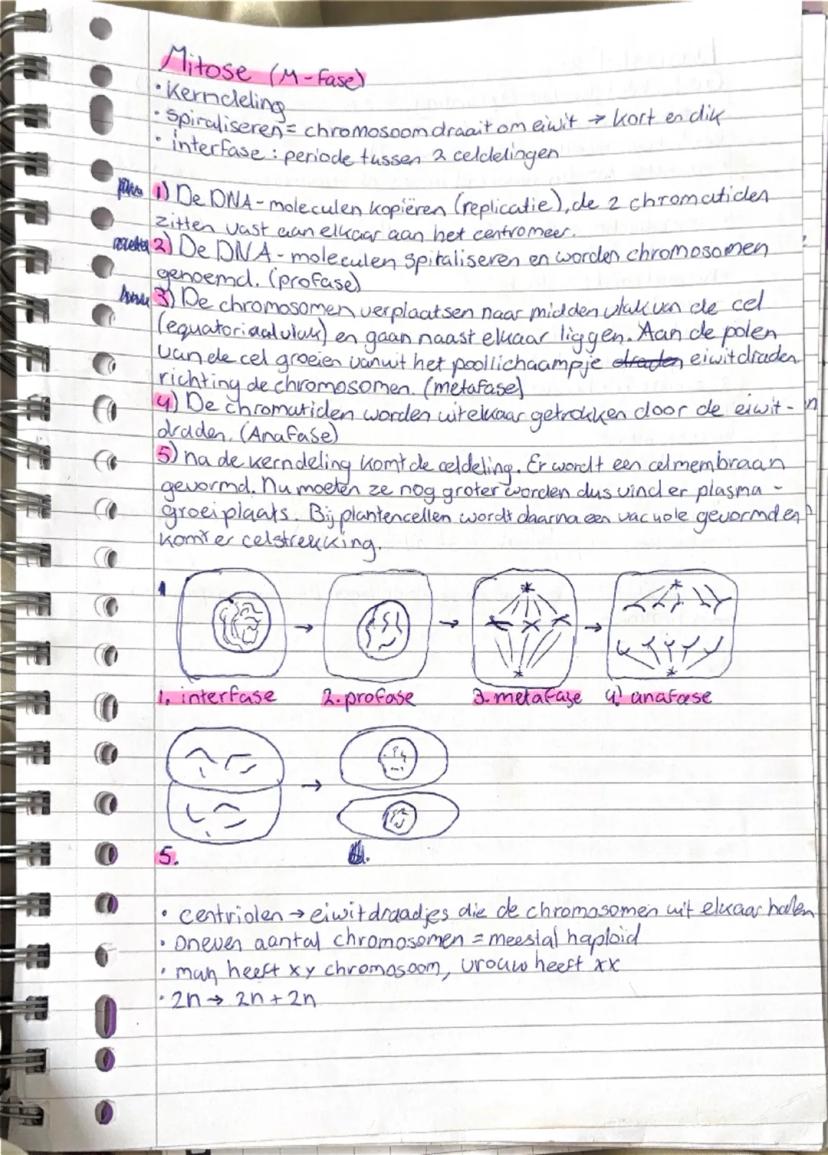 Mitose (M-fase)
• Kerndeling
• spiraliseren = chromosoom draait om eiwit → kort en dik
• interfase : periode tussen 2 celdelingen
1) De DNA-moleculen kopiëren (replicatie), de 2 chromatiden
zitten vast aan elkaar aan het centromeer.
2) De DNA-moleculen spitaliseren en worden chromosomen
genoemd. (profase)
3) De chromosomen verplaatsen naar midden vlak van de cel
(equatoriaalvlak) en gaan naast elkaar liggen. Aan de polen
van de cel groeien vanuit het poollichaampje draden eiwitdraden
richting de chromosomen. (metafase)
4) De chromatiden worden uitelkaar getrokken door de eiwit-
draden. (Anafase)
5) na de kerndeling komt de celdeling. Er wordt een celmembraan
gevormd. Nu moeten ze nog groter worden dus vind er plasma-
groei plaats. Bij plantencellen wordt daarna een vacuole gevormd en
komt er celstrekking.
1
1. interfase 2. profase 3. metafase 4) anafase
5.
• centriolen → eiwitdraadjes die de chromosomen uit elkaar halen
• oneven aantal chromosomen = meestal haploid
• man heeft xy chromosoom, vrouw heeft xx
• 2n → 2n + 2n